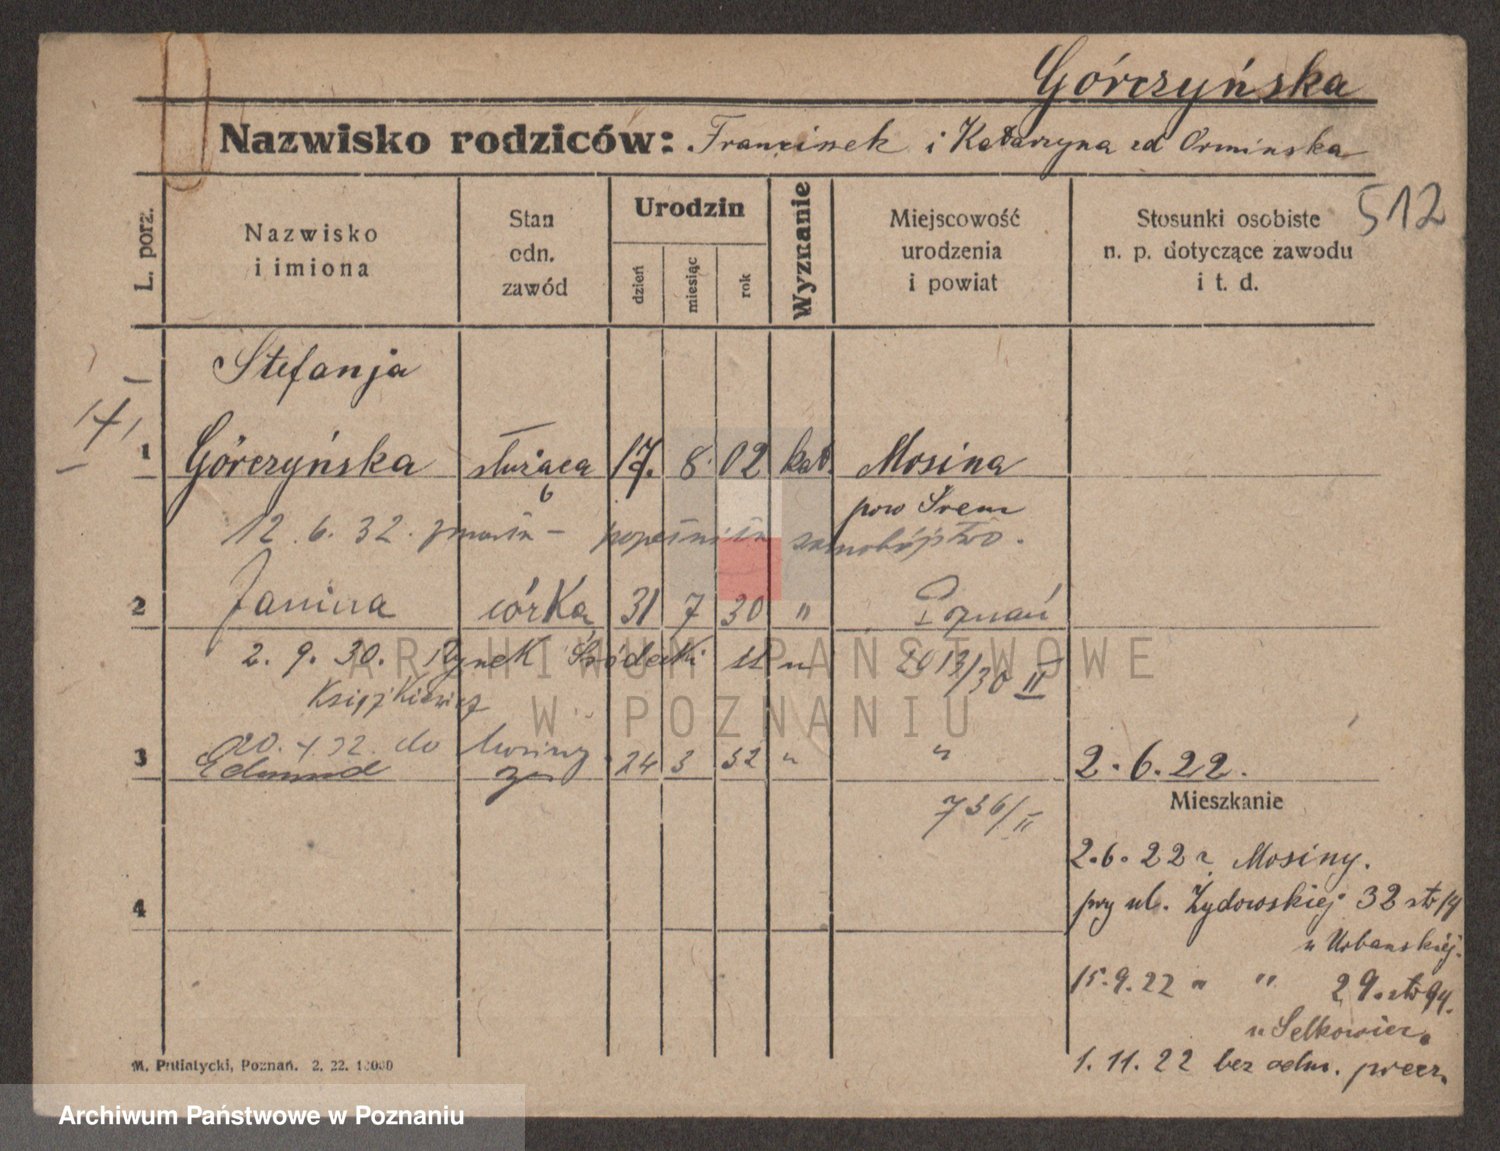 Górczyńska
Nazwisko rodziców: Franciszek i Katarzyna zd Ormińska
512
L. porz.
Nazwisko i imiona
Stan odn. zawód
Urodzin
dzień
miesiąc
rok
Wyznanie
Miejscowość urodzenia i powiat
Stosunki osobiste n. p. dotyczące zawodu i t. d.
Stefanja
1 Górczyńska służąca 17. 8. 02 kat. Mosina
pow Śrem
12.6.32. zmarła – popełniła samobójstwo.
2 Janina córka 31 7 30 " Poznań
2.9.30. Rynek Śródecki 11 u 2013/30 II
Książkiewicz
20.4.32. do Mosiny
3 Edmund 24 3 32 " " 2.6.22.
736/II
Mieszkanie
2.6.22 z Mosiny.
przy ul. Żydowskiej 32
u Urbańskiej.
15.9.22 " " 29.
u Selkowicz.
1.11.22 bez odm.
4
M. Putiatycki, Poznań. 2. 22. 10000
ARCHIWUM PAŃSTWOWE
W POZNANIU
Archiwum Państwowe w Poznaniu